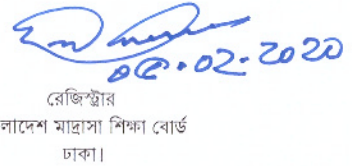 ০৫.০২.২০২০
রেজিস্ট্রার
লাদেশ মাদ্রাসা শিক্ষা বোর্ড
ঢাকা।